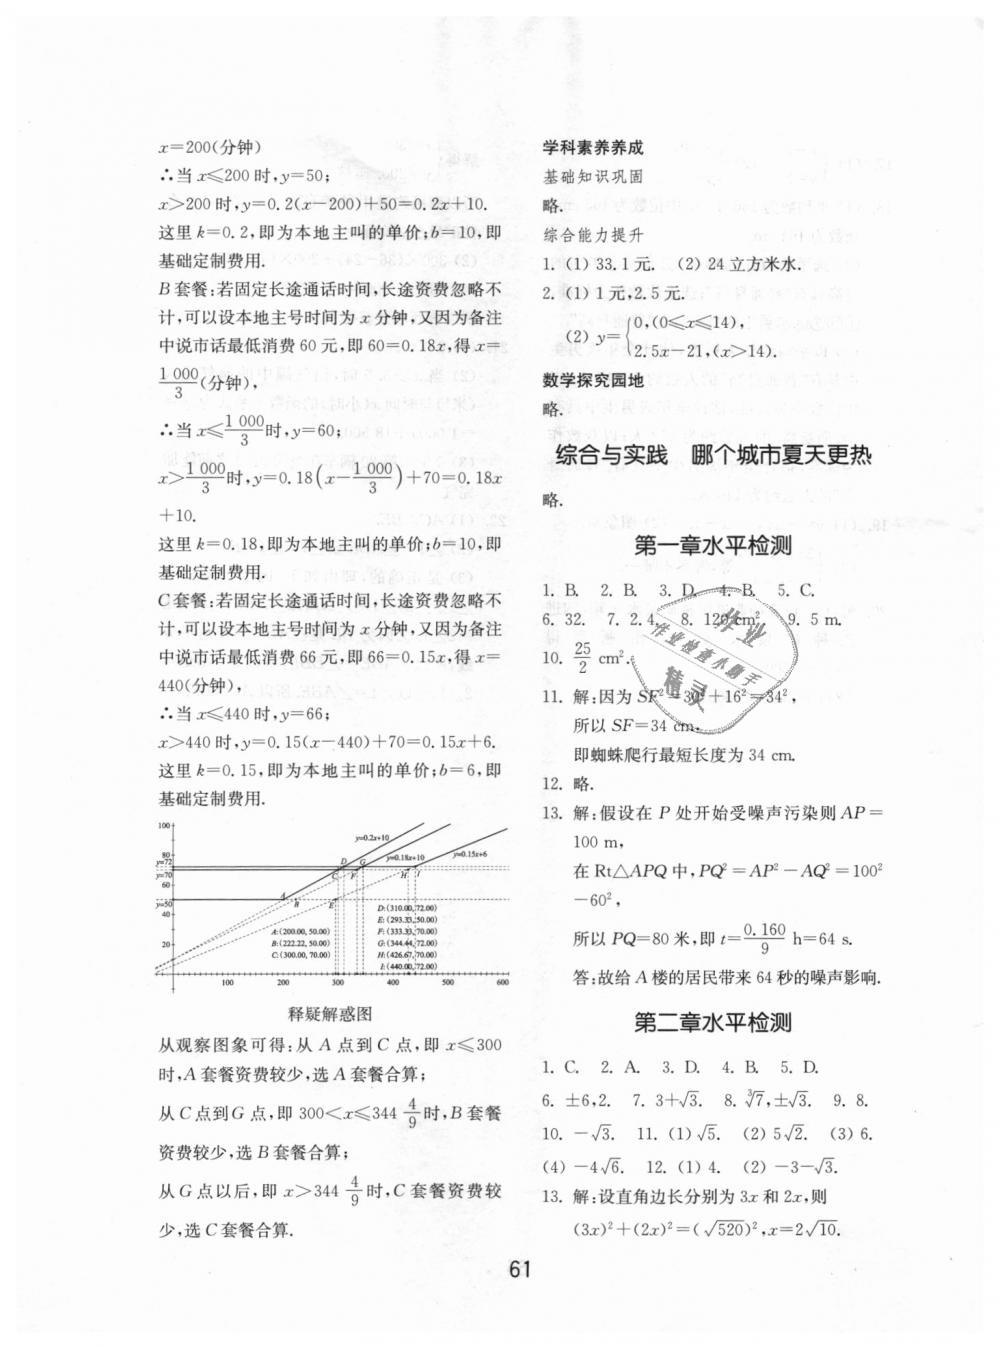 x=200(分钟)
∴当 x⩽200 时,y=50;
x>200 时,y=0.2(x-200)+50=0.2x+10.
这里 k=0.2,即为本地主叫的单价;b=10,即
基础定制费用.
B 套餐:若固定长途通话时间,长途资费忽略不
计,可以设本地主号时间为 x 分钟,又因为备注
中说市话最低消费 60 元,即 60=0.18x,得 x=
1 000/3 (分钟),
∴当 x⩽1 000/3 时,y=60;
x>1 000/3 时,y=0.18(x-1 000/3)+70=0.18x
+10.
这里 k=0.18,即为本地主叫的单价;b=10,即
基础定制费用.
C 套餐:若固定长途通话时间,长途资费忽略不
计,可以设本地主号时间为 x 分钟,又因为备注
中说市话最低消费 66 元,即 66=0.15x,得 x=
440(分钟),
∴当 x⩽440 时,y=66;
x>440 时,y=0.15(x-440)+70=0.15x+6.
这里 k=0.15,即为本地主叫的单价;b=6,即
基础定制费用.
100
y=0.2x+10
80
y=72
y=70
D G
y=0.18x+10
y=0.15x+6
C F H I
60
y=50
A B E
40
20
A:(200.00, 50.00)
B:(222.22, 50.00)
C:(300.00, 70.00)
D:(310.00, 72.00)
E:(293.33, 50.00)
F:(333.33, 70.00)
G:(344.44, 72.00)
H:(426.67, 70.00)
I:(440.00, 72.00)
100 200 300 400 500 600
释疑解惑图
从观察图象可得:从 A 点到 C 点,即 x⩽300
时,A 套餐资费较少,选 A 套餐合算;
从 C 点到 G 点,即 300<x⩽344 4/9 时,B 套餐
资费较少,选 B 套餐合算;
从 G 点以后,即 x>344 4/9 时,C 套餐资费较
少,选 C 套餐合算.
学科素养养成
基础知识巩固
略.
综合能力提升
1. (1) 33.1 元. (2) 24 立方米水.
2. (1) 1 元,2.5 元.
(2) y={0,(0⩽x⩽14),
2.5x-21,(x>14).
数学探究园地
略.
综合与实践 哪个城市夏天更热
略.
第一章水平检测
1. B. 2. B. 3. D. 4. B. 5. C.
6. 32. 7. 2.4. 8. 120 cm². 9. 5 m.
10. 25/2 cm².
11. 解:因为 SF²=30²+16²=34²,
所以 SF=34 cm,
即蜘蛛爬行最短长度为 34 cm.
12. 略.
13. 解:假设在 P 处开始受噪声污染则 AP=
100 m,
在 Rt△APQ 中,PQ²=AP²-AQ²=100²
-60²,
所以 PQ=80 米,即 t=0.160/9 h=64 s.
答:故给 A 楼的居民带来 64 秒的噪声影响.
第二章水平检测
1. C. 2. A. 3. D. 4. B. 5. D.
6. ±6,2. 7. 3+√3. 8. ∛7,±√3. 9. 8.
10. -√3. 11. (1) √5. (2) 5√2. (3) 6.
(4) -4√6. 12. (1) 4. (2) -3-√3.
13. 解:设直角边长分别为 3x 和 2x,则
(3x)²+(2x)²=(√520)²,x=2√10.
作业
作业检查小助手
精灵
61